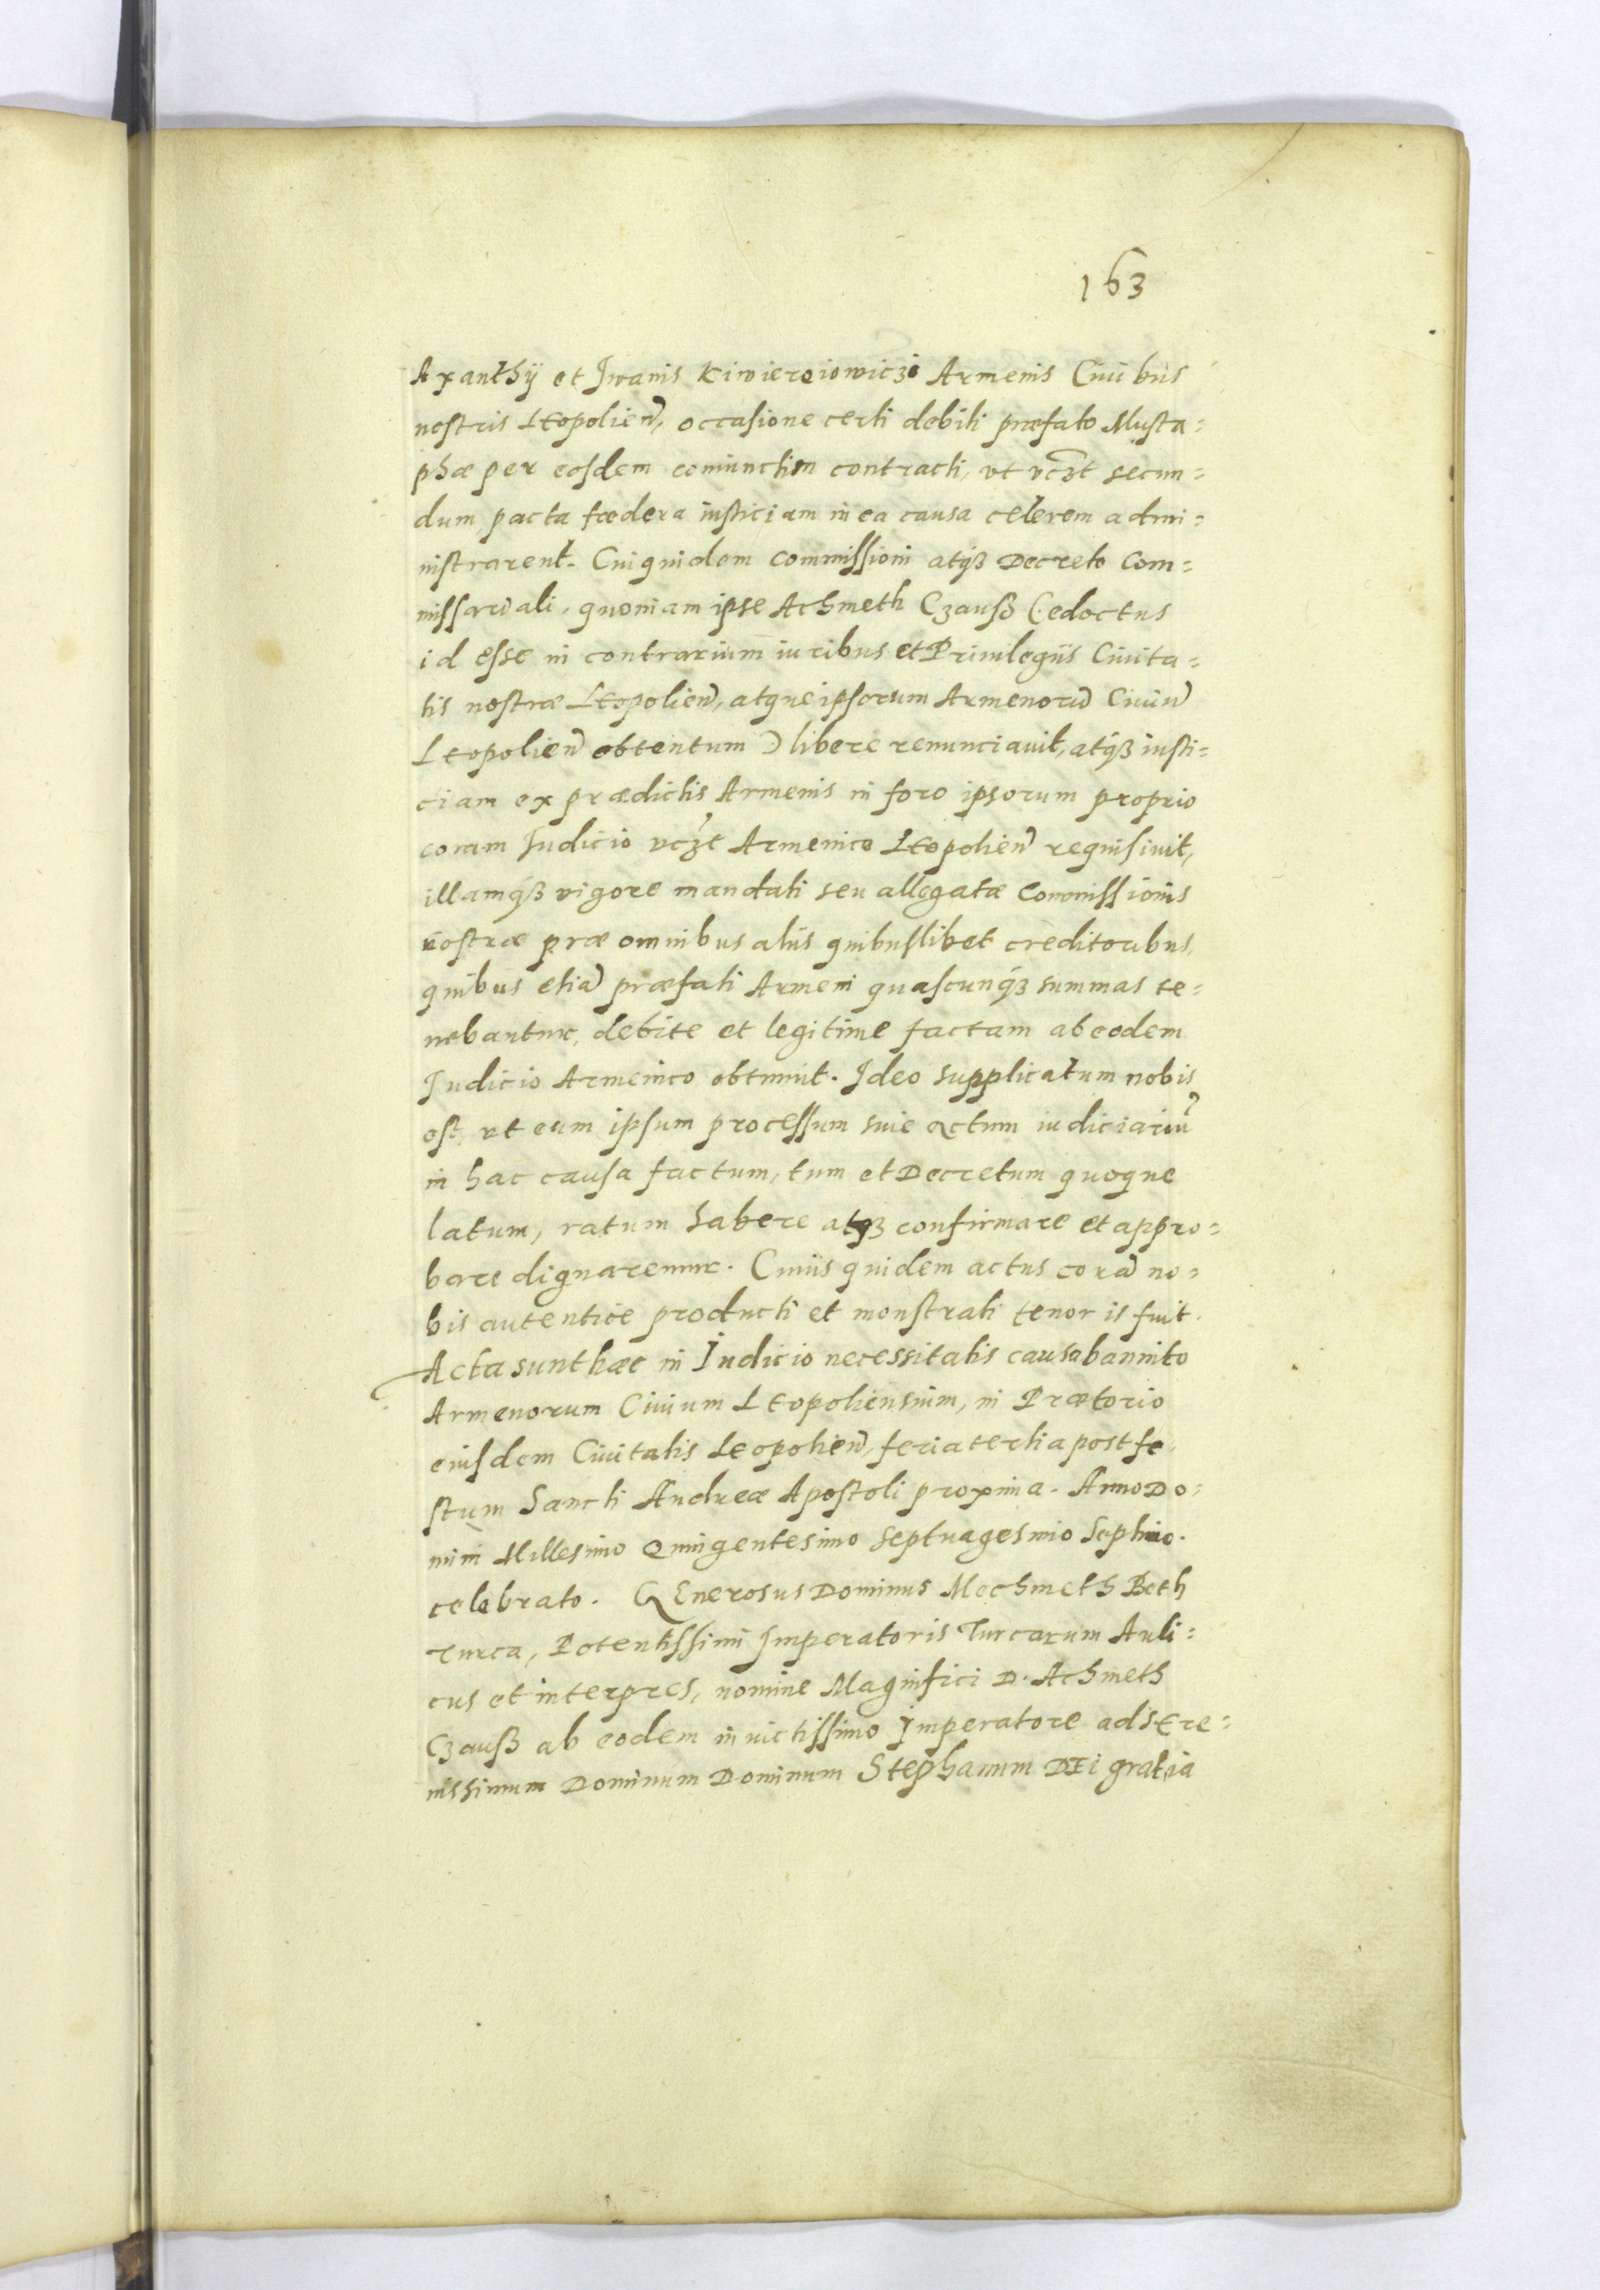 163
Axanthij et Jwanis Kiwiereiowiczi Armenis Ciuibus
nostris Leopolien, occasione certi debiti præfato Musta=
phæ per eosdem coniunctim contracti, vt vczt secun=
dum pacta fœdera iusticiam in ea causa celerem admi=
nistrarent. Cui quidem commissioni atq3 Decreto Com=
missariali, quoniam ipse Achmeth Czauß (edoctus
id esse in contrarium iuribus et Priuilegiis Ciuita=
tis nostræ Leopolien, atque ipsorum Armenorũ Ciuiũ
Leopolien obtentum) libere renunciauit, atq3 iusti=
ciam ex prædictis Armenis in foro ipsorum proprio
coram Judicio vczt Armenico Leopolien requisiuit,
illamq3 vigore mandati seu allegatæ Commissionis
nostræ præ omnibus aliis quibuslibet creditoribus,
quibus etiã præfati Armeni quascunq3 summas te=
nebantur, debite et legitime factam ab eodem
Judicio Armenico obtinuit. Ideo supplicatum nobis
est, vt eum ipsum processum siue actum iudiciariũ
in hac causa factum, tum et Decretum quoque
latum, ratum habere atq3 confirmare et appro=
bare dignaremur. Cuius quidem actus corã no=
bis autentice producti et monstrati tenor is fuit.
Acta sunt hæc in Iudicio necessitatis causa bannito
Armenorum Ciuium Leopoliensium, in Prætorio
eiusdem Ciuitatis Leopolien, feria tertia post fe=
stum Sancti Andreæ Apostoli proxima. Anno Do=
mini Millesimo Quingentesimo septuagesimo Septimo.
celebrato. GEnerosus Dominus Mechmeth Beth
Turca, Potentissimi Imperatoris Turcarum Auli=
cus et interpres, nomine Magnifici D. Achmeth
Czauß ab eodem inuictissimo Imperatore ad sere=
nissimum Dominum Dominum Stephanum DEi gratia